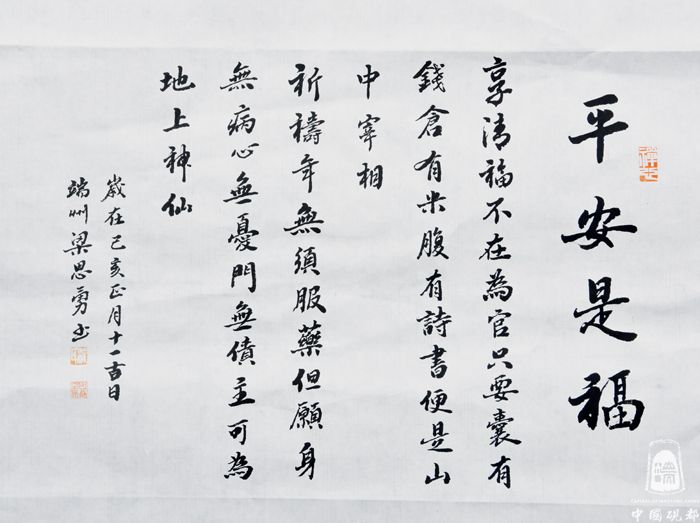 平安是福
享清福不在為官只要囊有
錢倉有米腹有詩書便是山
中宰相
祈禱年無須服藥但願身
無病心無憂門無債主可為
地上神仙
歲在己亥正月十一吉日
端州梁思勇书
中國硯都